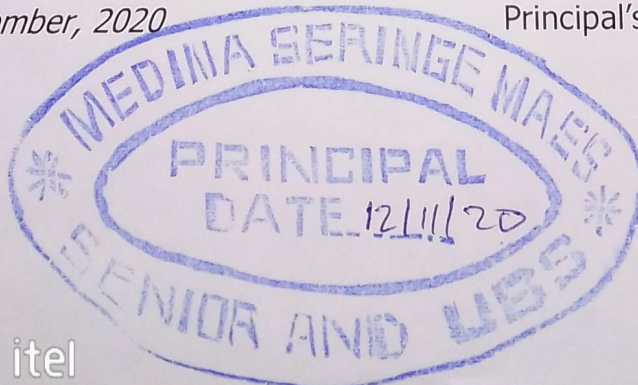 mber, 2020
Principal's
* MEDINA SERINGE MAES *
PRINCIPAL
DATE 12/11/20
SENIOR AND UBS
itel